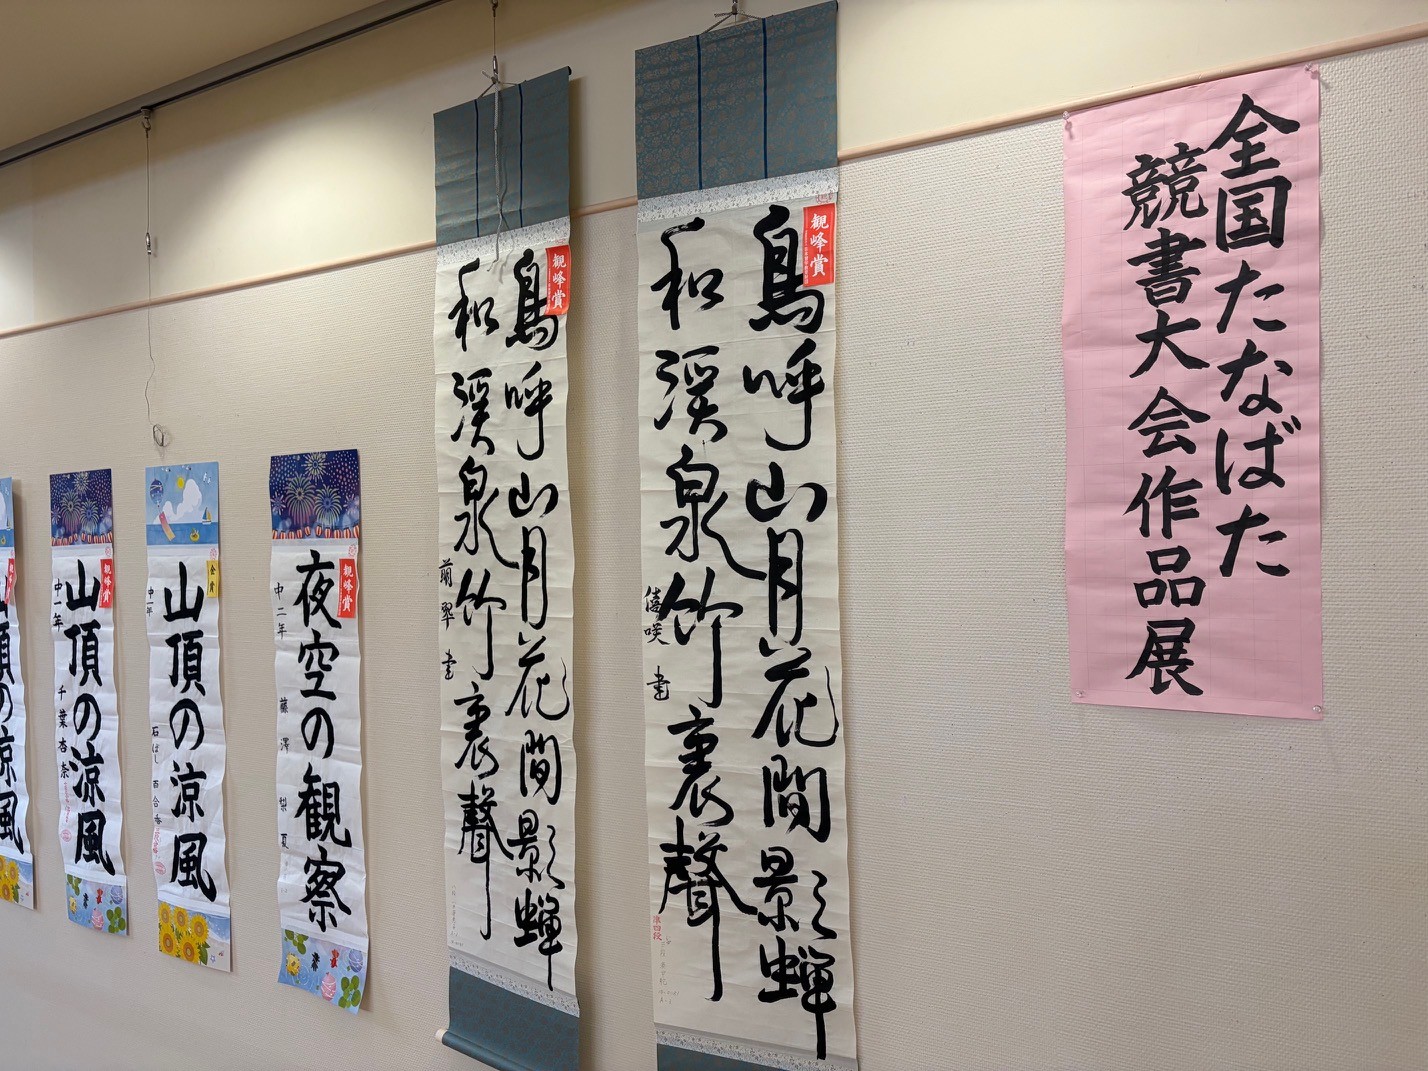 全国たなばた
競書大会作品展
観峰賞
鳥呼山月花間影蝉
和渓泉竹裏聲
僖咲 書
準四段
観峰賞
鳥呼山月花間影蝉
和渓泉竹裏聲
蘭翠 書
観峰賞
夜空の観察
中二年 藤澤 梨夏
金賞
山頂の涼風
中一年 石ばし 百合香
観峰賞
山頂の涼風
中一年 千葉杏奈
頂の涼風